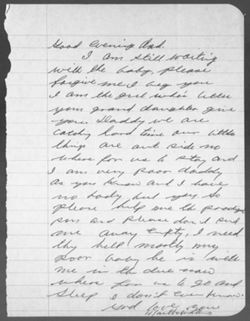 Good Evening Dad.
I am still waiting
with the baby, please
forgive me I beg you
I am the Girl who's little
your grand daughter give
you. Daddy we are
time our little
things are out side no
where for us to stay and
I am very poor daddy
as you know and I have
no body but you, so
please help me the
son did Please don't
me away Empty, I need
thy help mostly my
poor baby he is with
me in the
where for us to go and
sleep I don't Even know
God love you